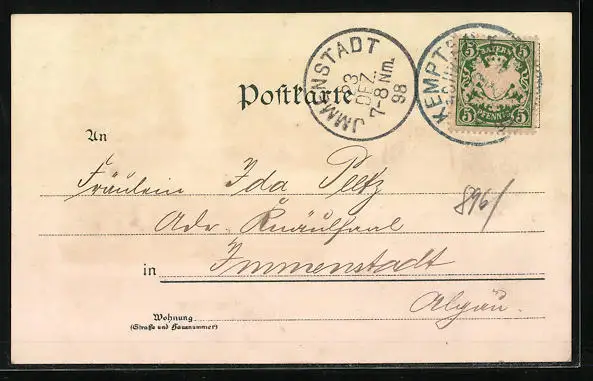 JMMENSTADT
23
DEZ.
7-8 Nm.
98
KEMPT
5 BAYERN 5
5 PFENNIG 5
Postkarte
An
Fräulein Ida
896/
Adr.
in Immenstadt
Algäu.
Wohnung
(Straße und Hausnummer)